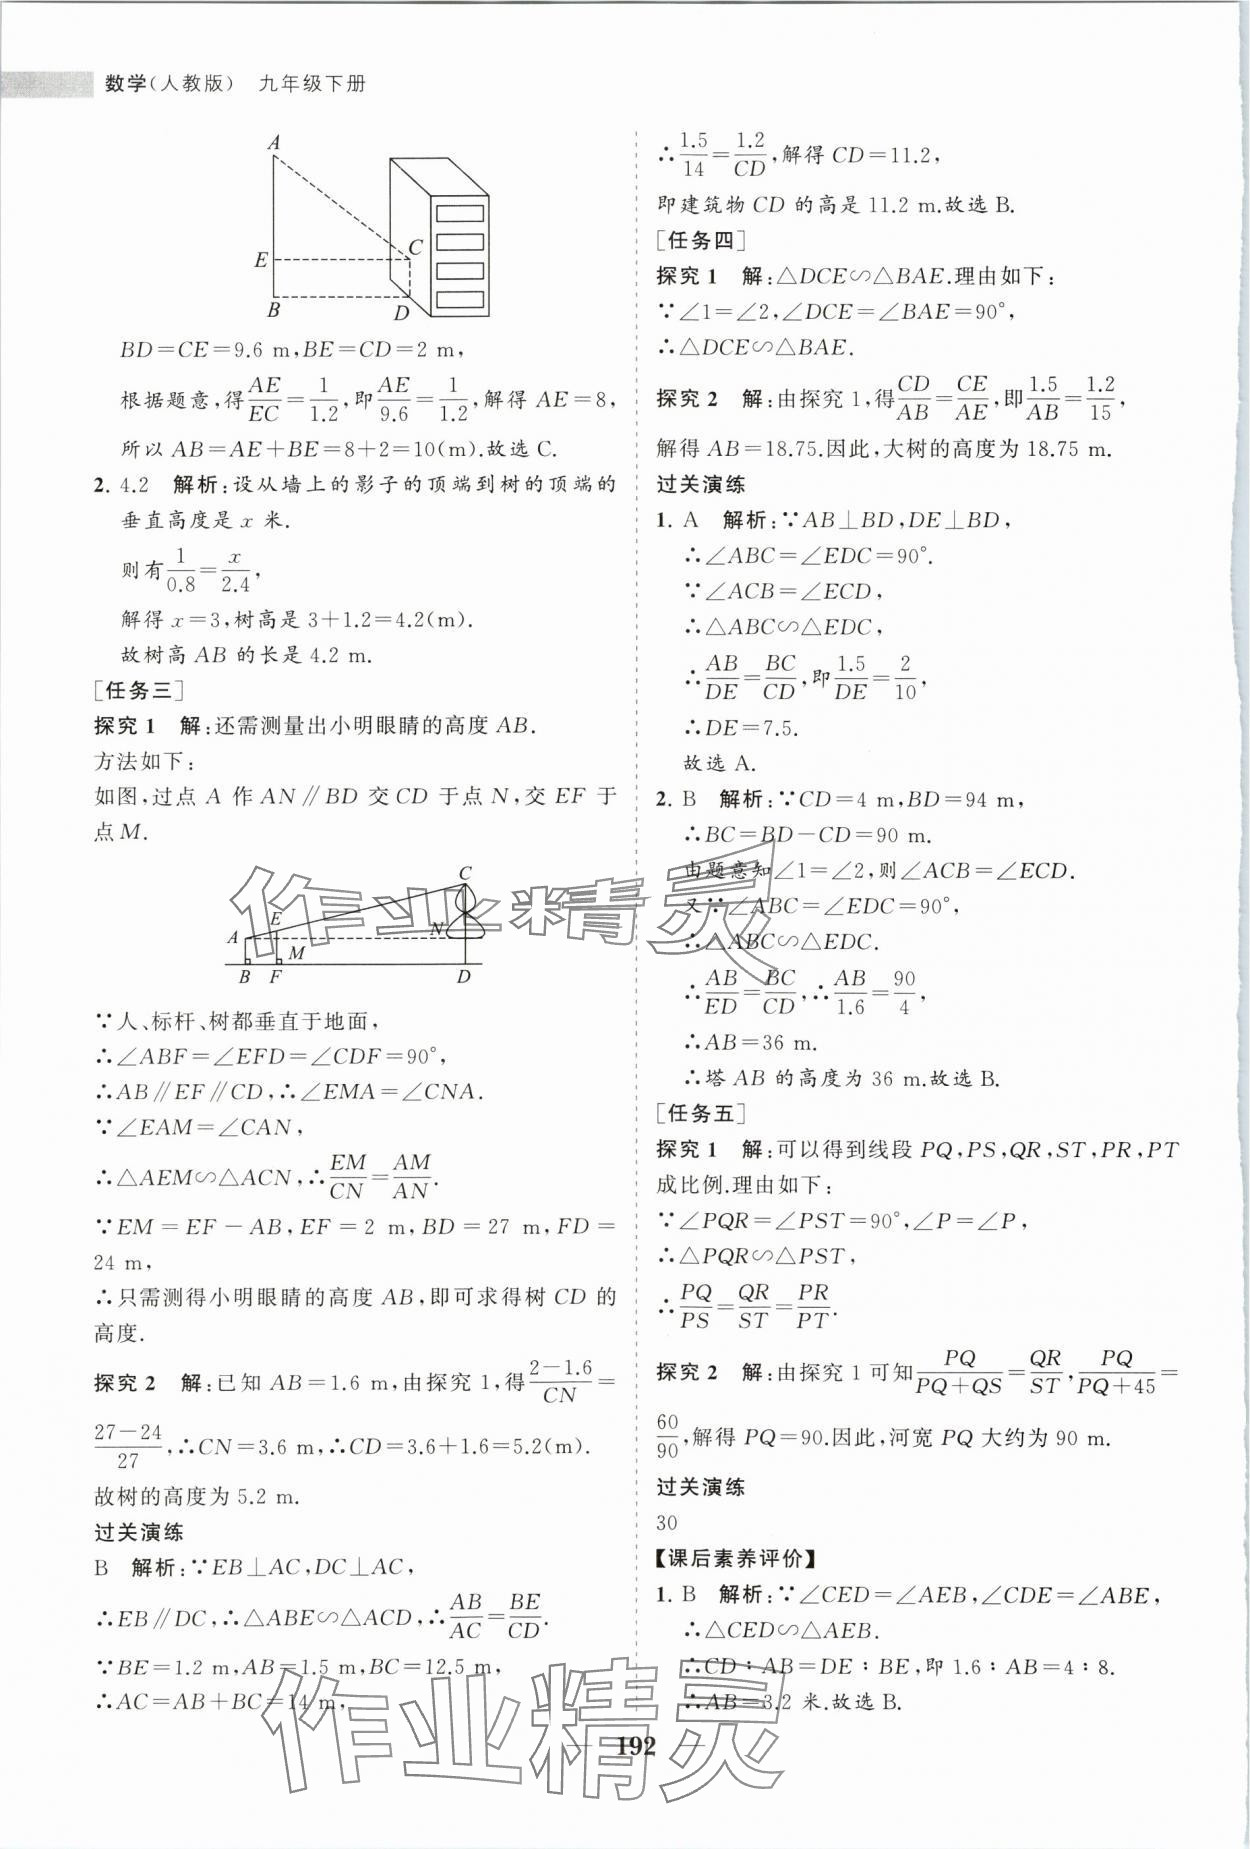 数学(人教版) 九年级下册
A
E
C
B
D
BD=CE=9.6 m,BE=CD=2 m,
根据题意,得AE/EC=1/1.2,即AE/9.6=1/1.2,解得 AE=8,
所以 AB=AE+BE=8+2=10(m).故选 C.
2. 4.2 解析:设从墙上的影子的顶端到树的顶端的
垂直高度是 x 米.
则有1/0.8=x/2.4,
解得 x=3,树高是 3+1.2=4.2(m).
故树高 AB 的长是 4.2 m.
[任务三]
探究 1 解:还需测量出小明眼睛的高度 AB.
方法如下:
如图,过点 A 作 AN∥BD 交 CD 于点 N,交 EF 于
点 M.
C
E
N
A
M
B F D
∵人、标杆、树都垂直于地面,
∴∠ABF=∠EFD=∠CDF=90°,
∴AB∥EF∥CD,∴∠EMA=∠CNA.
∵∠EAM=∠CAN,
∴△AEM∽△ACN,∴EM/CN=AM/AN.
∵EM=EF-AB,EF=2 m,BD=27 m,FD=
24 m,
∴只需测得小明眼睛的高度 AB,即可求得树 CD 的
高度.
探究 2 解:已知 AB=1.6 m,由探究 1,得(2-1.6)/CN=
(27-24)/27,∴CN=3.6 m,∴CD=3.6+1.6=5.2(m).
故树的高度为 5.2 m.
过关演练
B 解析:∵EB⊥AC,DC⊥AC,
∴EB∥DC,∴△ABE∽△ACD,∴AB/AC=BE/CD.
∵BE=1.2 m,AB=1.5 m,BC=12.5 m,
∴AC=AB+BC=14 m,
∴1.5/14=1.2/CD,解得 CD=11.2,
即建筑物 CD 的高是 11.2 m.故选 B.
[任务四]
探究 1 解:△DCE∽△BAE.理由如下:
∵∠1=∠2,∠DCE=∠BAE=90°,
∴△DCE∽△BAE.
探究 2 解:由探究 1,得CD/AB=CE/AE,即1.5/AB=1.2/15,
解得 AB=18.75.因此,大树的高度为 18.75 m.
过关演练
1. A 解析:∵AB⊥BD,DE⊥BD,
∴∠ABC=∠EDC=90°.
∵∠ACB=∠ECD,
∴△ABC∽△EDC,
∴AB/DE=BC/CD,即1.5/DE=2/10,
∴DE=7.5.
故选 A.
2. B 解析:∵CD=4 m,BD=94 m,
∴BC=BD-CD=90 m.
由题意知∠1=∠2,则∠ACB=∠ECD.
又∵∠ABC=∠EDC=90°,
∴△ABC∽△EDC.
∴AB/ED=BC/CD,∴AB/1.6=90/4,
∴AB=36 m.
∴塔 AB 的高度为 36 m.故选 B.
[任务五]
探究 1 解:可以得到线段 PQ,PS,QR,ST,PR,PT
成比例.理由如下:
∵∠PQR=∠PST=90°,∠P=∠P,
∴△PQR∽△PST,
∴PQ/PS=QR/ST=PR/PT.
探究 2 解:由探究 1 可知PQ/(PQ+QS)=QR/ST,PQ/(PQ+45)=
60/90,解得 PQ=90.因此,河宽 PQ 大约为 90 m.
过关演练
30
【课后素养评价】
1. B 解析:∵∠CED=∠AEB,∠CDE=∠ABE,
∴△CED∽△AEB.
∴CD∶AB=DE∶BE,即 1.6∶AB=4∶8.
∴AB=3.2 米.故选 B.
192
作业精灵
作业精灵